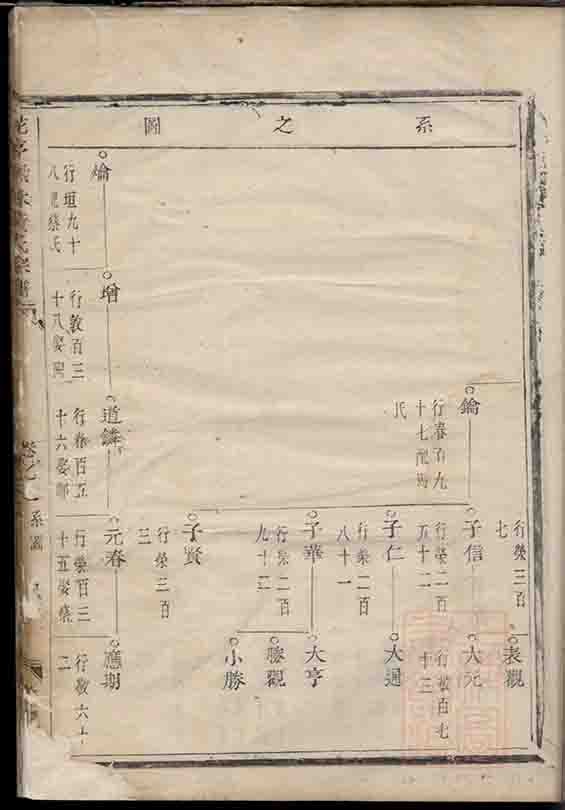 系之圖
行榮三百
七
表觀
鑰
行春百九
十七配馬
氏
子信
行榮二百
五十二
大元
行敏百七
十三
子仁
行榮二百
八十一
大通
子華
行榮二百
九十二
大亨
勝觀
小勝
子賢
行榮三百
三
行垣九十
八 氏
增
行敦百三
十八娶
道鏻
行春百五
十六娶
元春
行榮百三
十五娶
應期
行敏六十
二
系圖